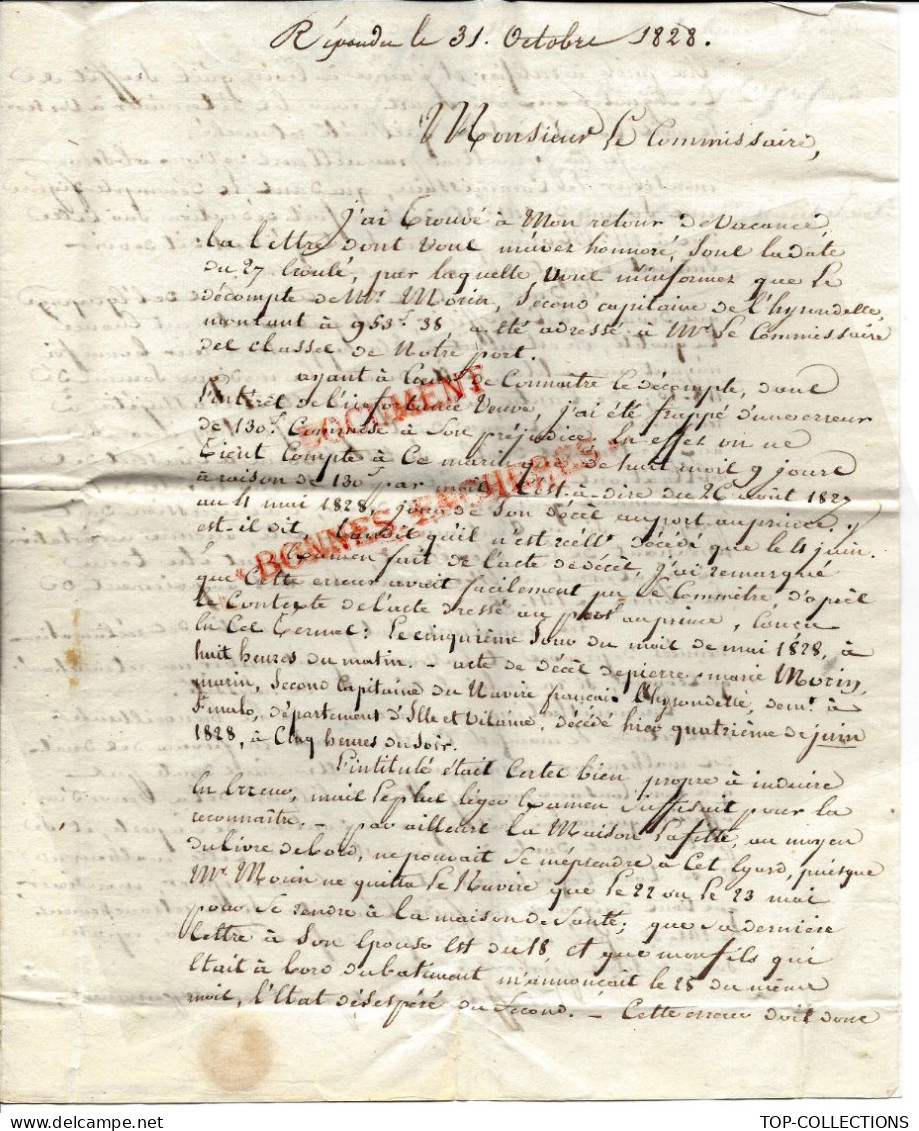 Répondu le 31. Octobre 1828.
Monsieur Le Commissaire,
j'ai trouvé à Mon retour de Vacance,
la lettre dont vous m'avez honnoré, sous la date
du 27 Ecoulé, par laquelle vous m'informez que Le
décompte de Mr. Morin, Second capitaine de l'hyrondelle,
montant à 953f 38, a été adressé à Mr Le Commissaire
des classes de Notre port.
ayant à Coeur de Connaitre le décompte, dans
l'intérêt de l'infortunée Veuve, j'ai été frappé d'une erreur
de 130f Commise à Son préjudice. En effet on ne
Tient Compte à Ce marin que de huit mois 9 jours
à raison de 130f par mois, C'est-à-dire du 26 août 1827
au 4 mai 1828, jour de Son décès au port au prince,
est-il dit, tandis qu'il n'est réellt décédé que le 4 juin.
Examen fait de l'acte de décès, j'ai remarqué
que Cette erreur avait facilement pu Se Commettre d'après
Le Contexte de l'acte dressé au port au prince, Conçu
En Ces Termes: Le cinquième Jour du mois de mai 1828, à
huit heures du matin. - acte de décès de pierre marie Morin,
marin, Second Capitaine du Navire français L'hyrondelle, demt à
St malo, département d'Ille et Vilaine, décédé hier quatrième de juin
1828, à Cinq heures du Soir.
L'intitulé était Certes bien propre à induire
En Erreur, mais Le plus léger Examen Suffisait pour la
reconnaître. - par ailleurs la Maison Lafitte, au moyen
du livre de bord, ne pouvait Se méprendre à Cet Egard, puisque
Mr. Morin ne quitta Le Navire que Le 22 ou Le 23 mai
pour Se rendre à la maison de Santé; que Sa dernière
lettre à Son Epouse Est du 18, et que mon fils qui
Etait à bord du batiment m'annonçait le 25 du même
mois, l'Etat désespéré du Second. - Cette erreur doit donc
DOCUMENT
BONNES ENCHERES
TOP-COLLECTIONS